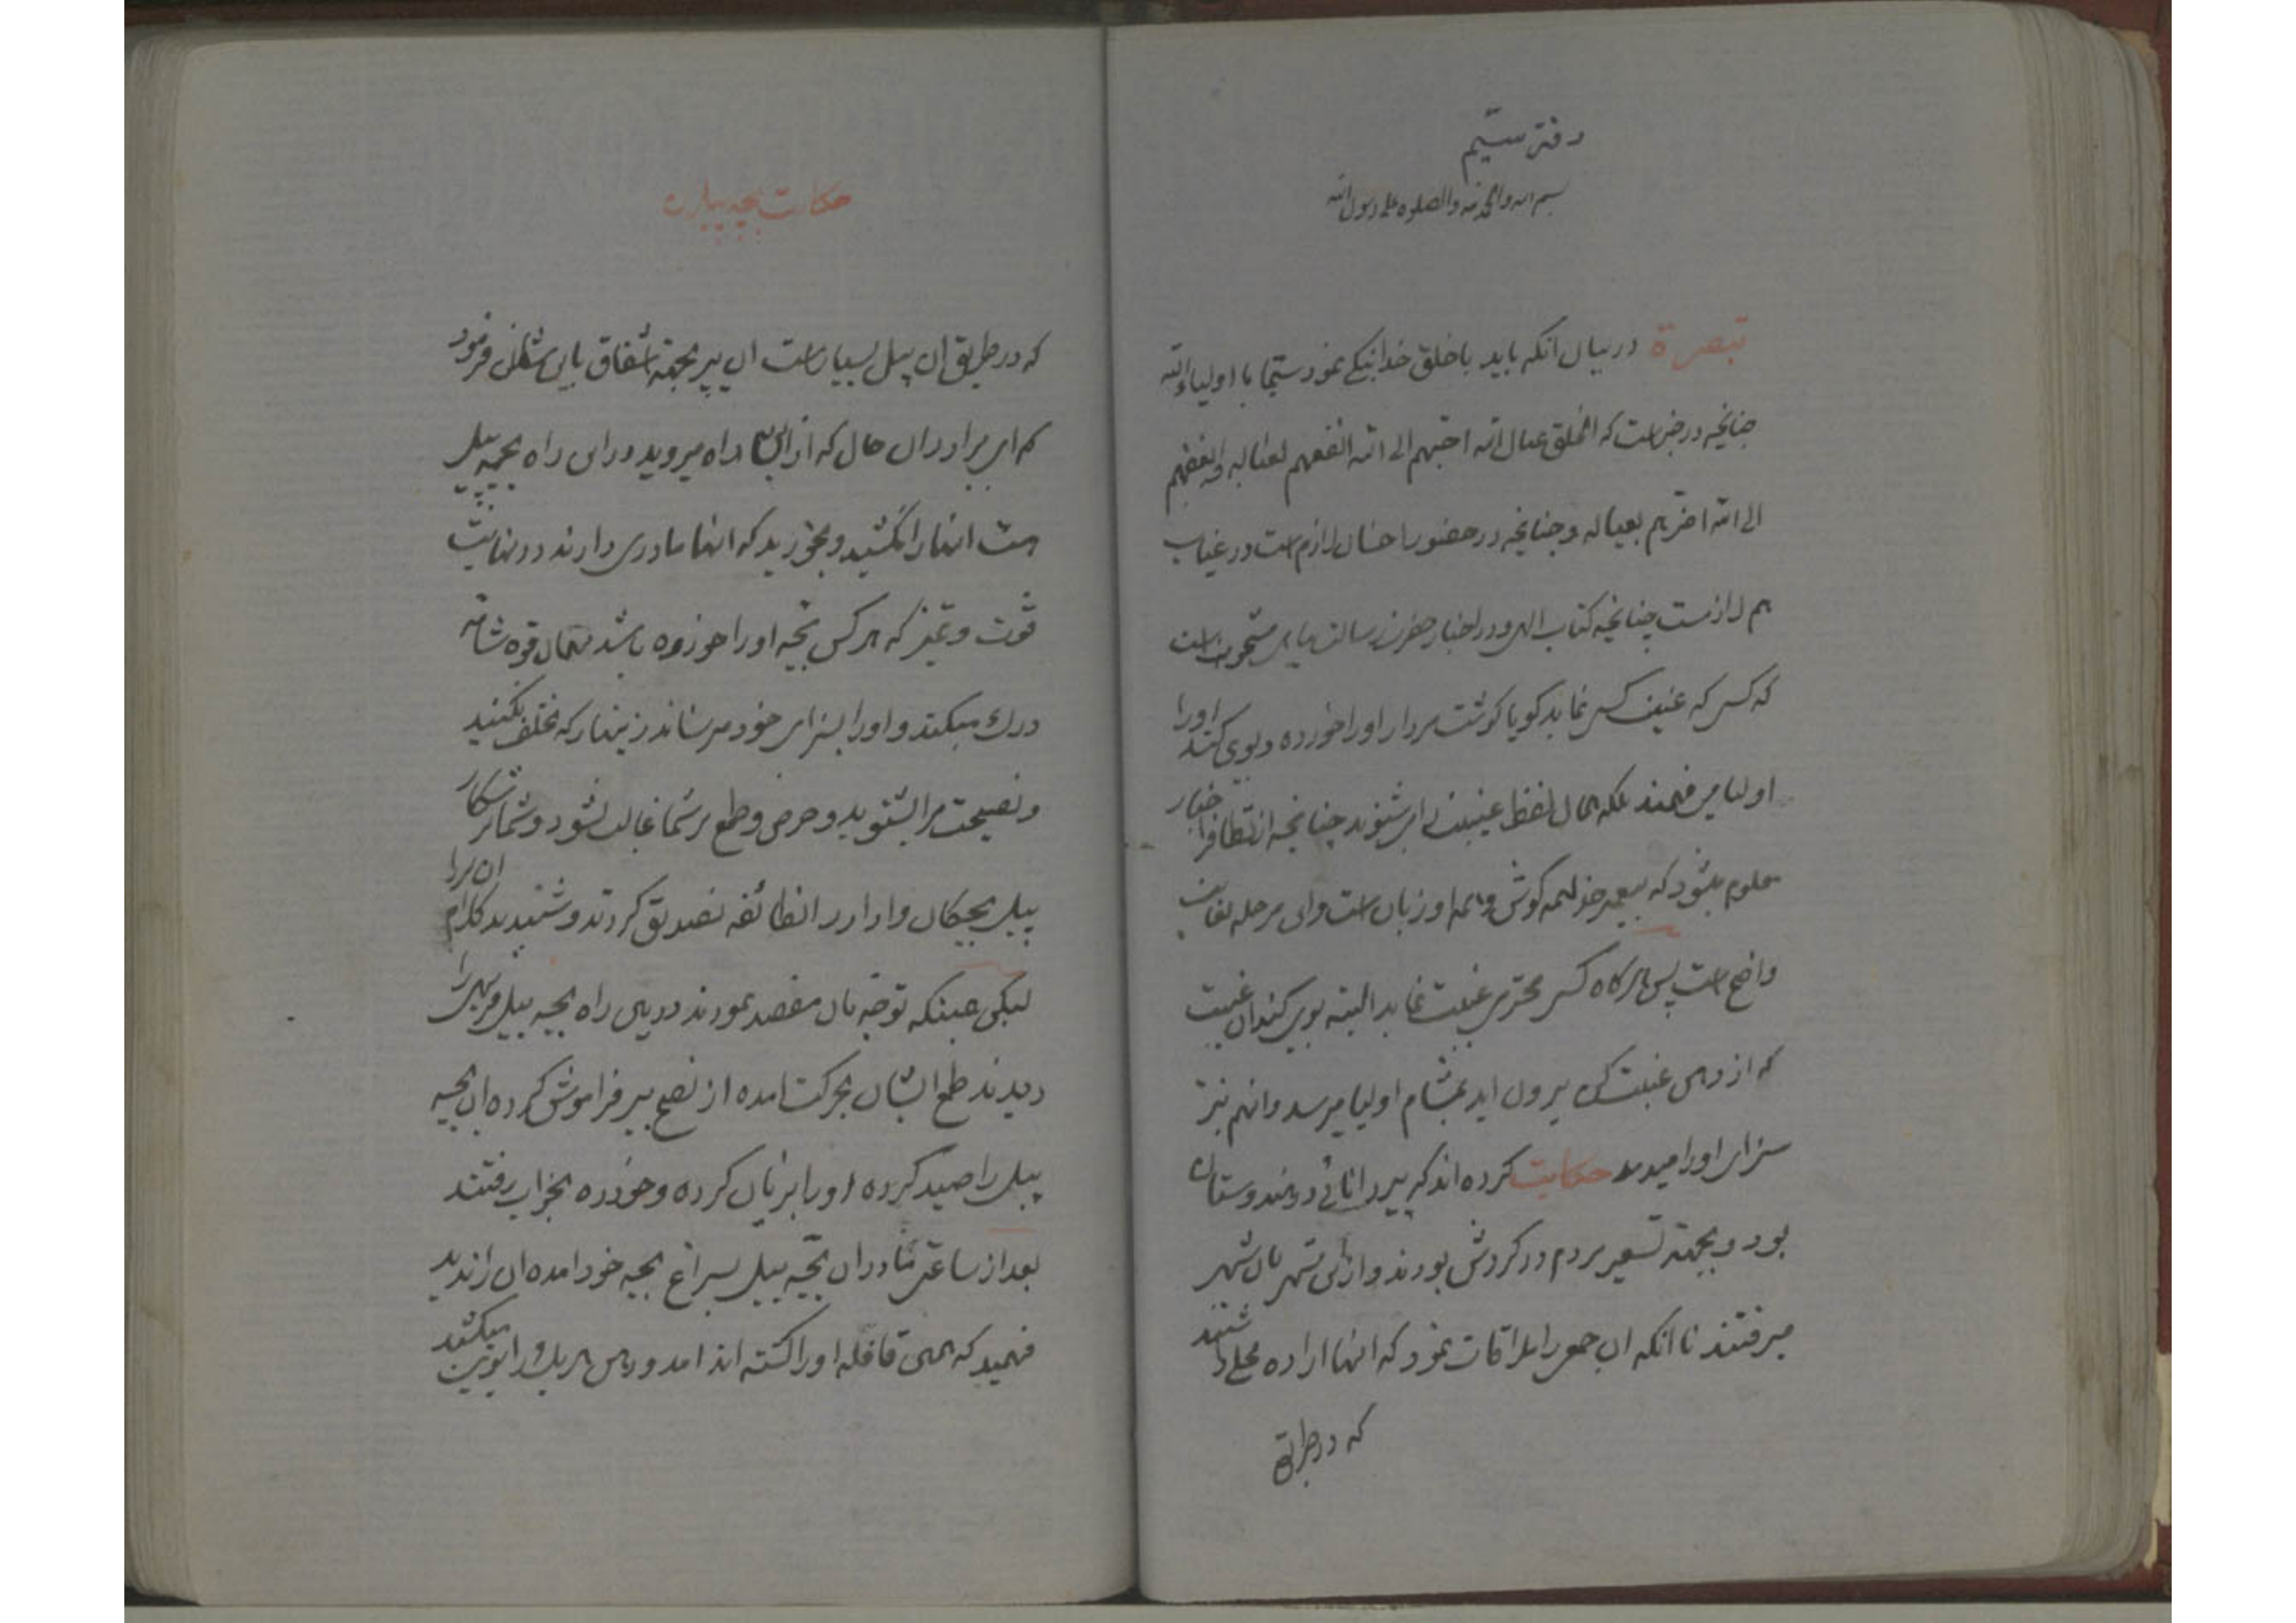 دفتر سیم
بسم الله والحمد لله والصلوه علی رسول الله
تبصرة در بیان انکه باید با خلق خدا نیکی نمود سیما با اولیاء الله
چنانچه در خبر است که الخلق عیال الله احبهم الی الله انفعهم لعیاله و ابغضهم
الی الله اضرهم بعیاله و چنانچه در حضور احسان لازم است در غیاب
هم لازمست چنانچه کتاب الهی و در اخبار حضرت رسالت پناهی مشحونست
که کسی که غیبت کسی نماید کویا کوشت مردار او را خورده و بوی کند او را
اولیا می فهمند بلکه همان لفظ غیبت را می شنوند چنانچه از
معلوم میشود که پیغمبر خدا همه کوش و همه او زبان است و این مرحله بغایت
واضح است پس هرکاه کسی محترمی غیبت نماید البته بوی کند ان غیبت
که از دهن غیبت کن بیرون اید بمشام اولیا میرسد و انهم نیز
سزای او را میدهد حکایت کرده اند که پیر دانائی در هندوستان
بود و بجهته مردم در کردش بودند و از این شهر بان شهر
میرفتند تا انکه ان جمعی را ملاقات نمود که انها اراده محلی داشتند
که در طریق
حکایت بچه پیل
که در طریق ان پیل بسیار است ان پیر بجهته اشفاق باین شکل فرمود
که ای برادران حال که از این راه میروید در این راه بچه پیل
هست انها را نکشید و نخورید که انها مادری دارند در نهایت
قوت و تمیز که هر کس بچه او را خورده باشد بهمان قوه شامه
درک میکند و او را بسزای خود میرساند زینهار که تخلف نکنید
و نصیحت مرا بشنوید و حرص و طمع بر شما غالب نشود و شما شکار
پیل بچکان وادارد انطائفه تصدیق کردند و شنیدند کلام ان را
لیکن همینکه توجه بان مقصد نمودند در بین راه بچه پیل فربهی را
دیدند طمع ایشان بحرکت امده از نصح پیر فراموش کرده ان بچه
پیل را صید کرده او را بریان کرده و خورده بخواب رفتند
بعد از ساعتی مادر ان بچه پیل بسراغ بچه خود امده ان را ندید
فهمید که همین قافله او را کشته اند امد و دهن هر یک را بو میکشید